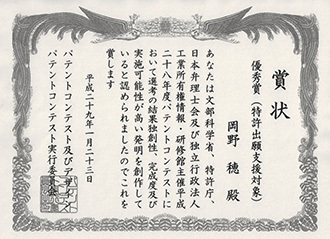 賞状
優秀賞(特許出願支援対象)
岡野 穂 殿
あなたは文部科学省、特許庁、
日本弁理士会及び独立行政法人
工業所有権情報・研修館主催平成
二十八年度パテントコンテストに
おいて選考の結果独創性、完成度及び
実施可能性が高い発明を創作して
いると認められましたのでこれを
賞します
平成二十九年一月二十三日
パテントコンテスト及びデザイン
パテントコンテスト実行委員会